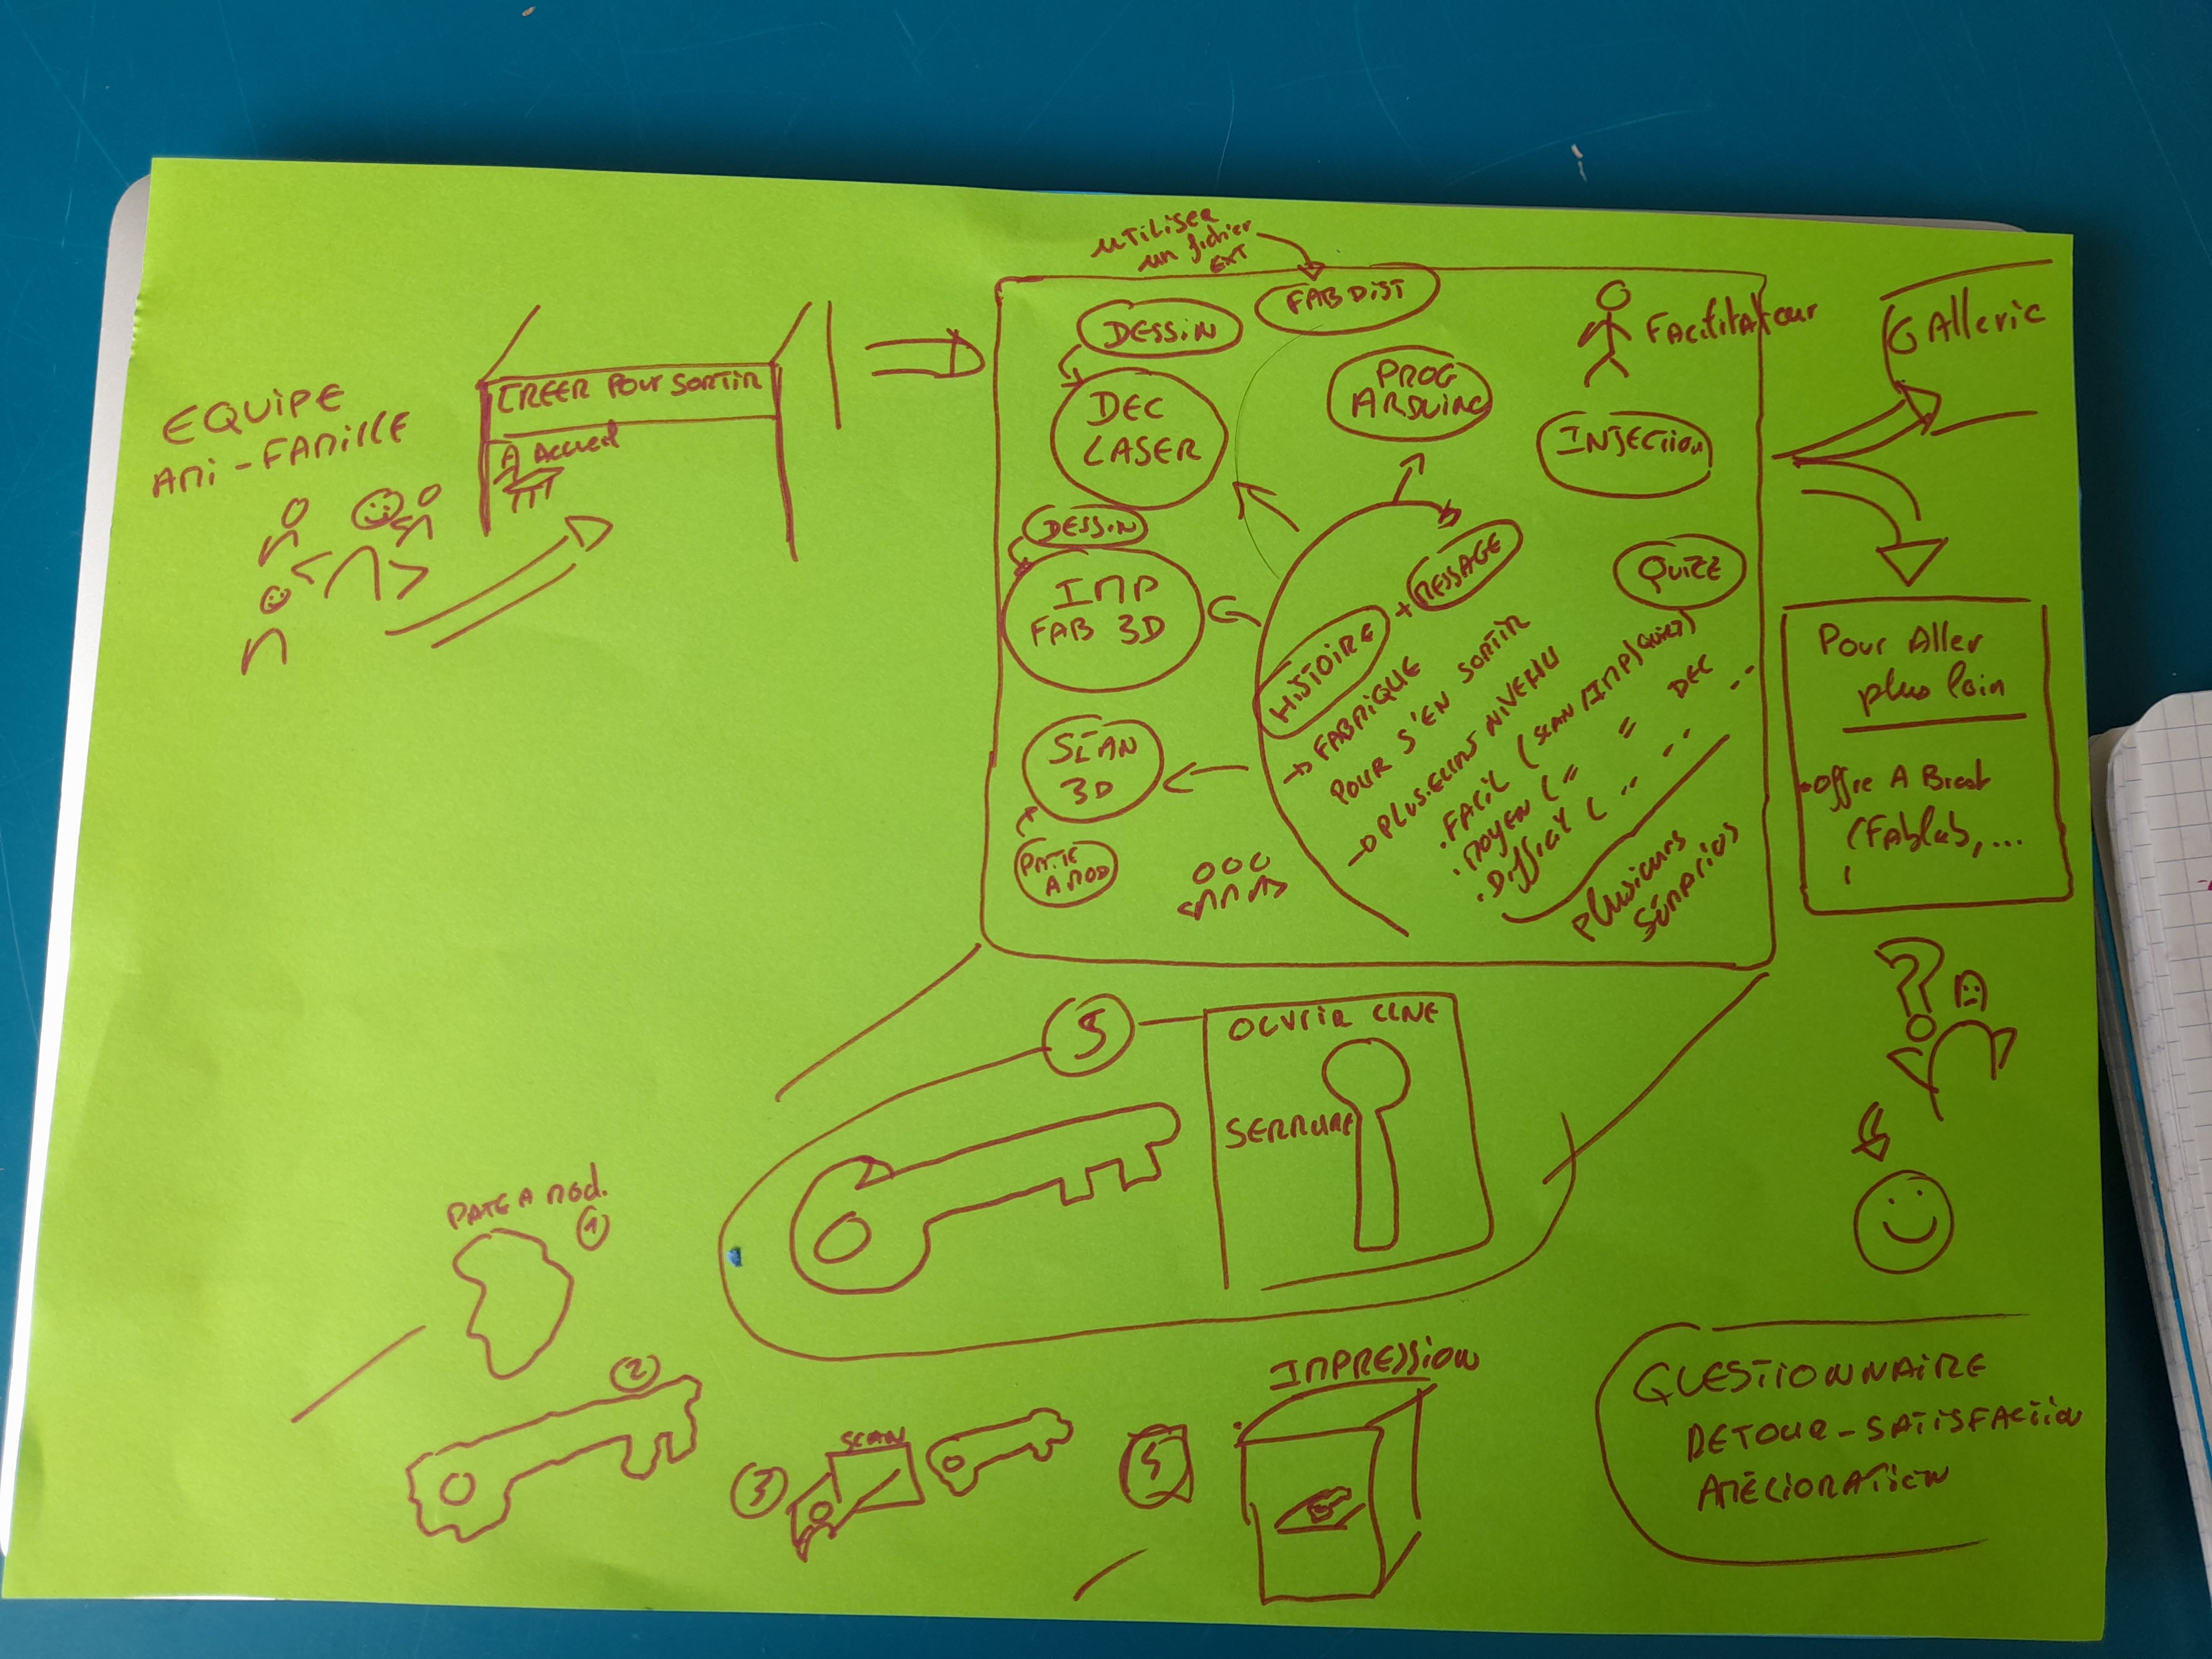 EQUIPE
AMI - FAMILLE
CREER POUR SORTIR
Accueil
UTILISER
un fichier
EXT
FAB DIST
DESSIN
DEC
LASER
PROG
ARDUINO
Facilitateur
INJECTION
DESSIN
IMP
FAB 3D
SCAN
3D
PATE
A MOD
HISTOIRE + MESSAGE
→ FABRIQUE
POUR S'EN SORTIR
→ PLUSIEURS NIVEAU
. FACIL (SCAN/IMP/QUIZZ)
. MOYEN ( " " DEC
. Difficil ( " " "
PLUSIEURS
SÉNARIOS
QUIZZ
GAllerie
Pour Aller
plus loin
Offre A Brest
(Fablab, ...
5
OUVRIR UNE
SERRURE
PATE A MOD.
1
2
3
SCAN
5
IMPRESSION
QUESTIONNAIRE
DETOUR - SATISFACTION
AMÉLIORATION